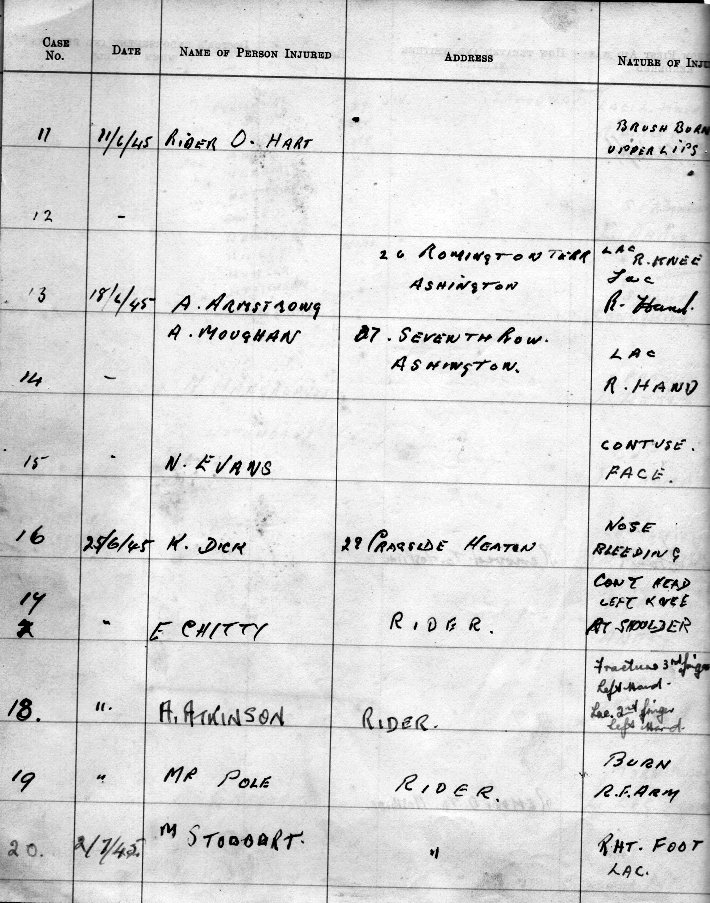 CASE No. DATE NAME OF PERSON INJURED ADDRESS NATURE OF INJU
11 11/6/45 RIDER O. HART BRUSH BURN
UPPER LIPS.
12 -
13 18/6/45 A. ARMSTRONG 26 ROMINGTON TERR LAC R. KNEE
ASHINGTON Lac
R. Hand.
14 - A. MOUGHAN 87. SEVENTH ROW. LAC
ASHINGTON. R. HAND
15 - N. EVANS CONTUSE.
FACE.
16 25/6/45 K. DICK 29 CRAGSIDE HEATON NOSE
BLEEDING
17 " E CHITTY RIDER. CONT HEAD
LEFT KNEE
SHOULDER
18. " A. ATKINSON RIDER. Fracture 3rd finger
Left Hand.
Lac. 2nd finger
left Hand.
19 " MR POLE RIDER. BURN
R.F.ARM
20. 2/7/45 M STODDART. " RHT. FOOT
LAC.